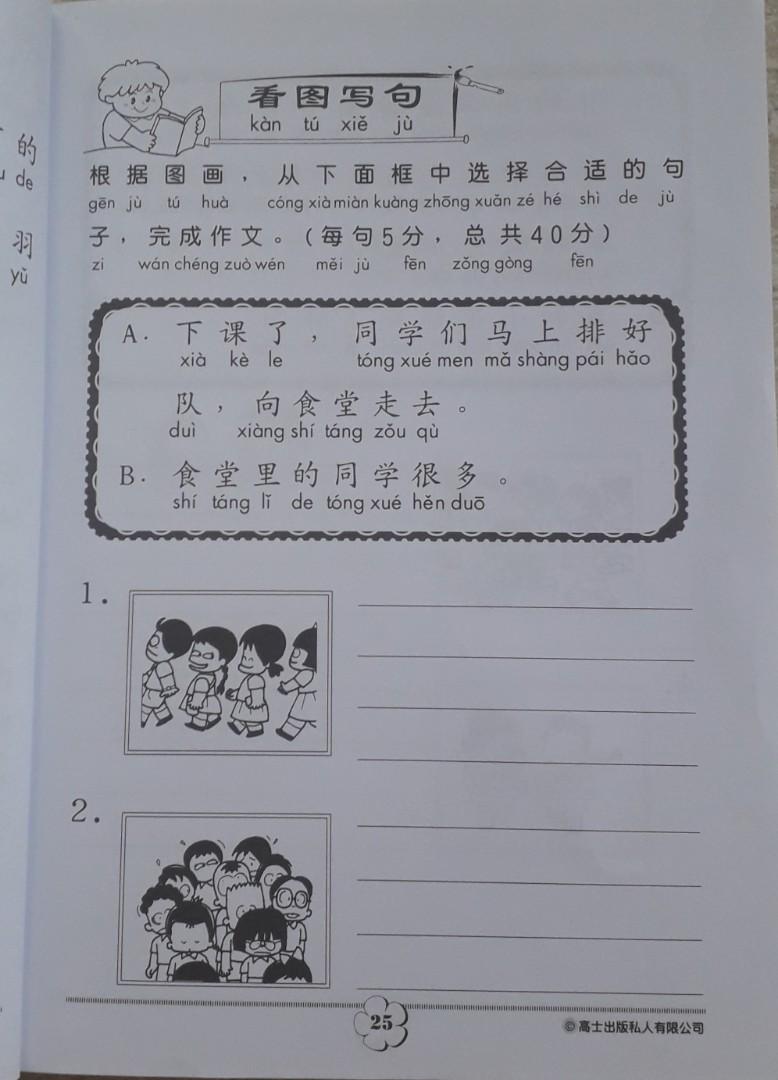 的
de
羽
yǔ
看图写句
kàn tú xiě jù
根据图画，从下面框中选择合适的句
gēn jù tú huà cóng xià miàn kuàng zhōng xuǎn zé hé shì de jù
子，完成作文。（每句5分，总共40分）
zi wán chéng zuò wén měi jù fēn zǒng gòng fēn
A. 下课了，同学们马上排好
xià kè le tóng xué men mǎ shàng pái hǎo
队，向食堂走去。
duì xiàng shí táng zǒu qù
B. 食堂里的同学很多。
shí táng lǐ de tóng xué hěn duō
1.
2.
25
© 高士出版私人有限公司